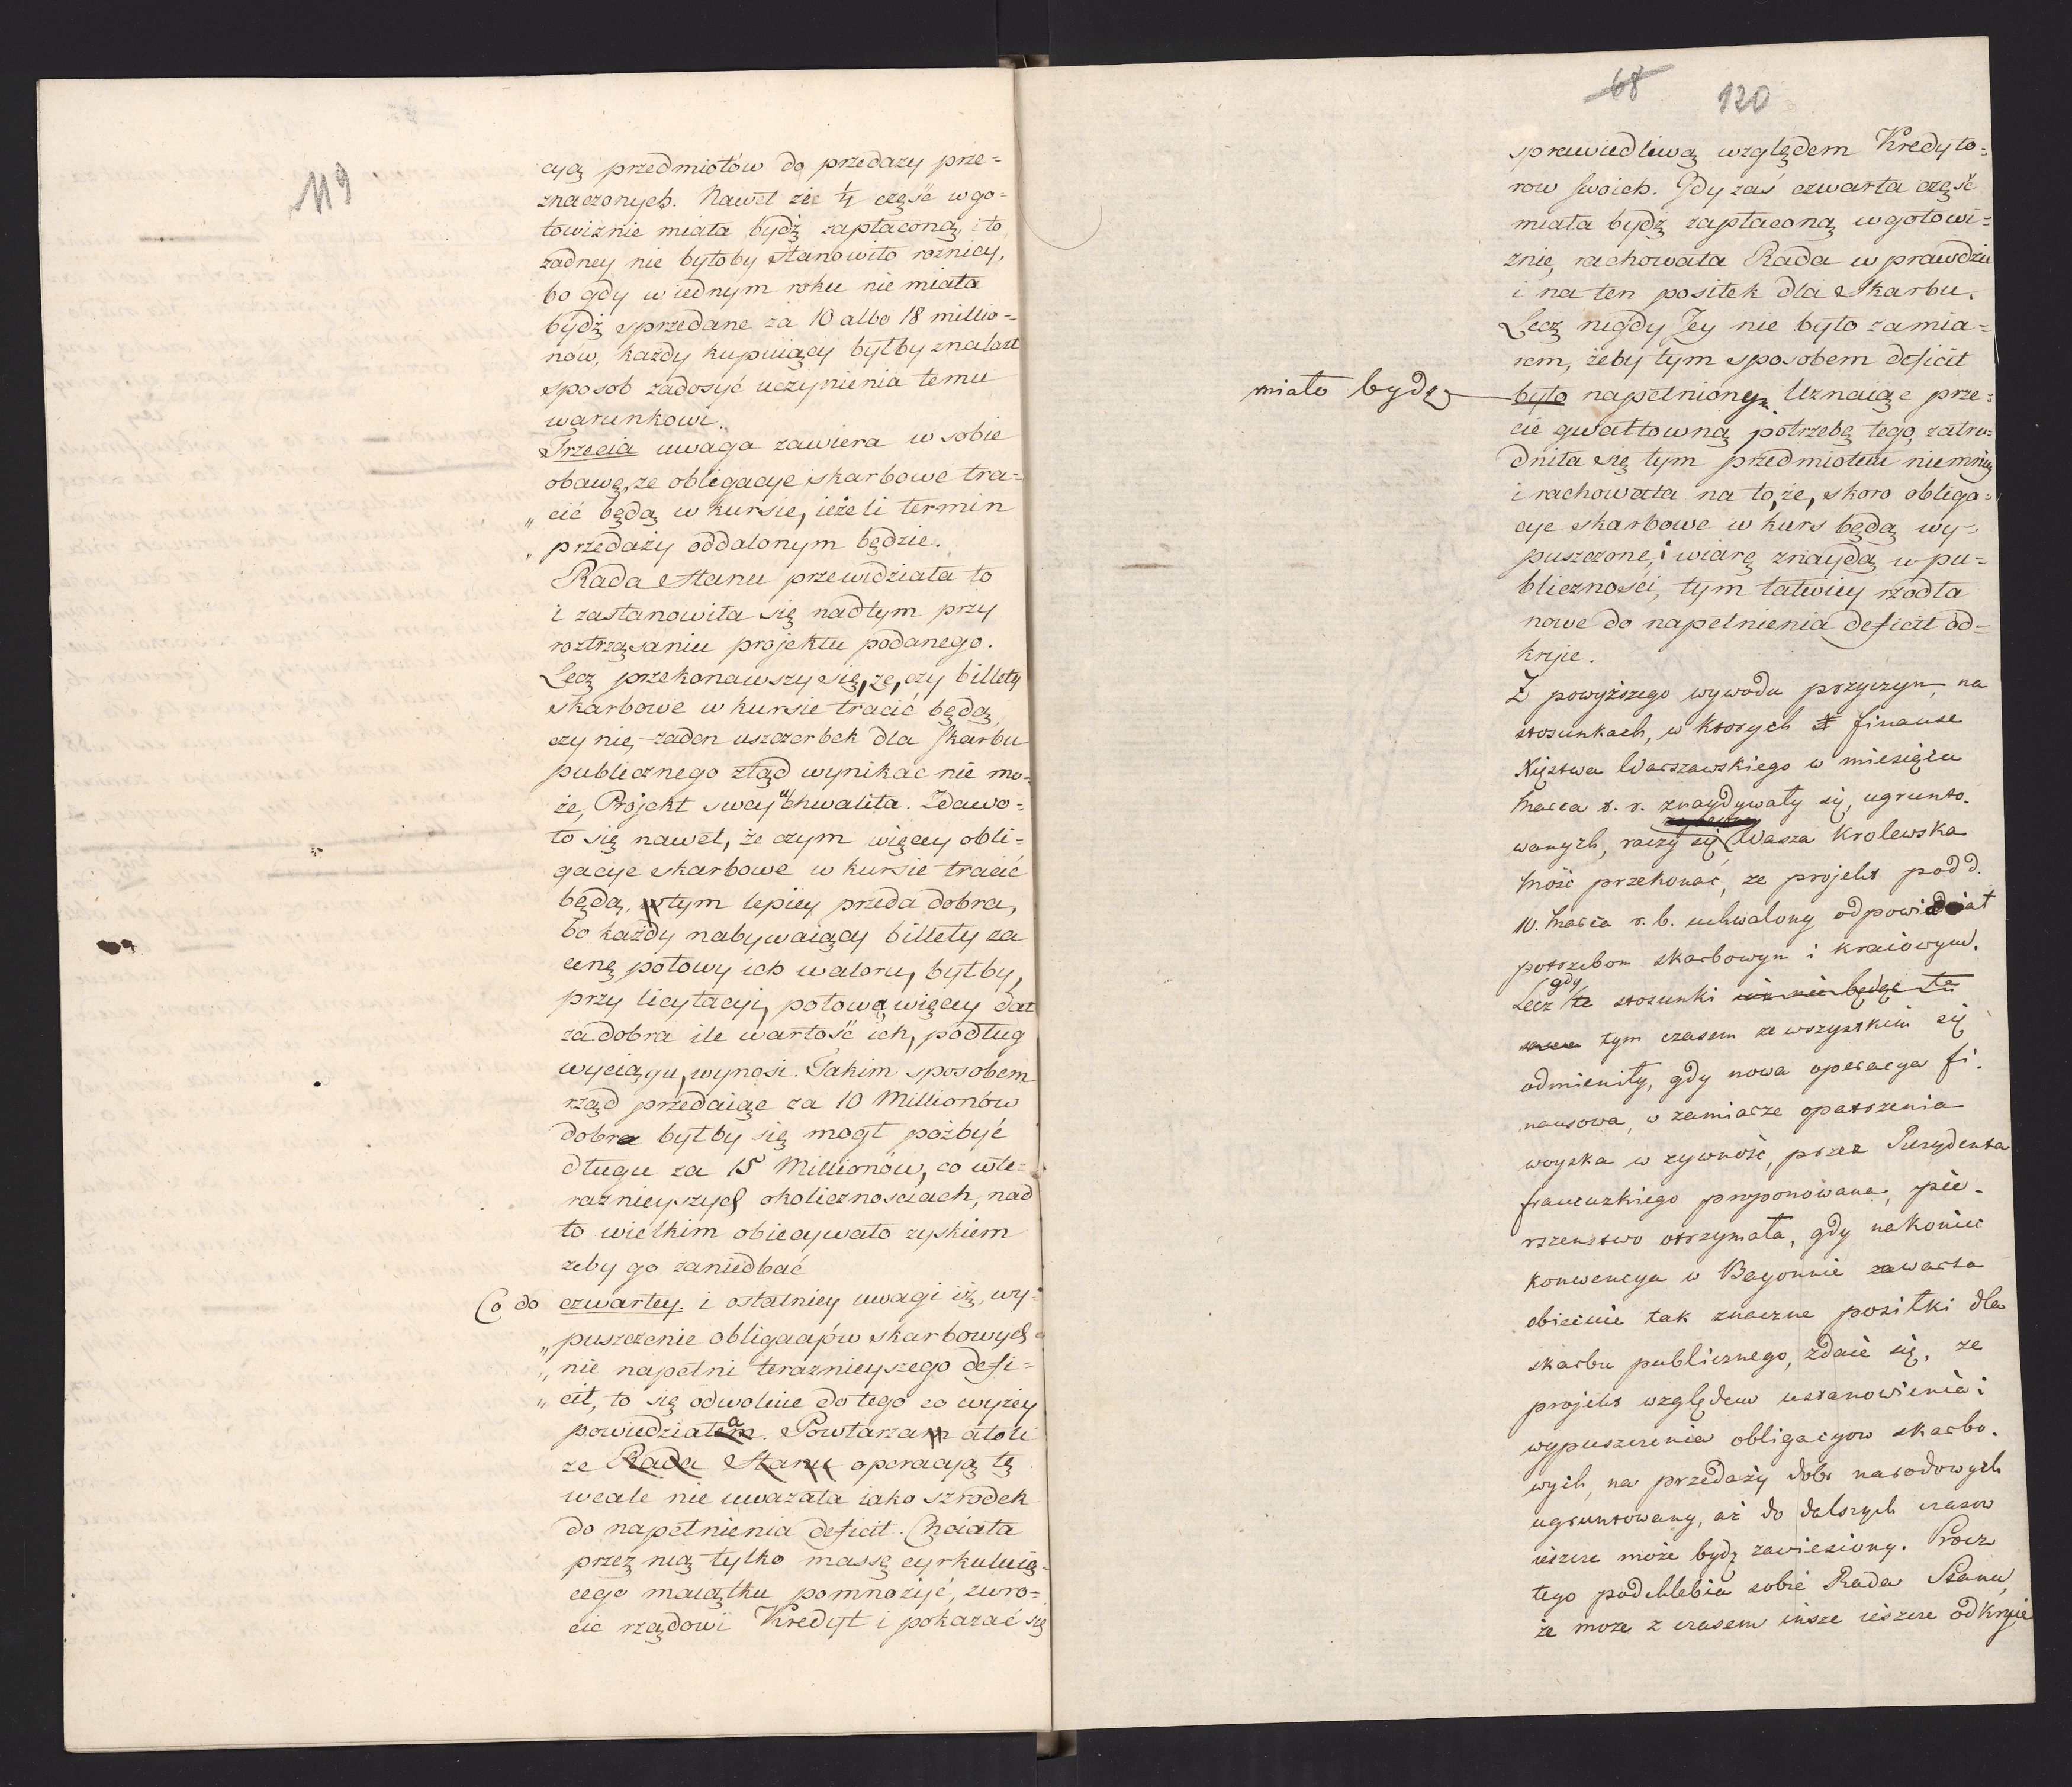 119
cyą przedmiotów do przedaży prze=
znaczonych. Nawet że ¼ część w go=
towiznie miała bydź zapłaconą, i to
żadney nie byłoby stanowiło rożnicy,
bo gdy w iednym roku nie miała
bydź sprzedane za 10 albo 18 millio=
nów, każdy kupuiący byłby znalazł
sposob zadosyć uczynienia temu
warunkowi.
Trzecia uwaga zawiera w sobie
obawę, że obligacye skarbowe tra=
„ cić będą w kursie, ieżeli termin
„ przedaży oddalonym będzie.
Rada Stanu przewidziała to
i zastanowiła się nad tym przy
roztrząsaniu projektu podanego.
Lecz przekonawszy się, że, czy billety
skarbowe w kursie tracić będą
czy nie, żaden uszczerbek dla skarbu
publicznego ztąd wynikać nie mo=
że, Projekt swoy uchwaliła. Zdawa=
ło się nawet, że czym więcey obli=
gacye skarbowe w kursie tracić
będą, tym lepiey przeda dobra,
bo każdy nabywaiący billety za
cenę połowy ich waloru, byłby,
przy licytacyi, połowę więcey dał
za dobra ile wartość ich, podług
wyciągu, wynosi. Takim sposobem
rząd przedaiąc za 10 Millionów
dobra byłby się mogł pozbyć
długu za 15 Millionów, co w te=
raznieyszych okolicznosciach, nad
to wielkim obiecywało zyskiem
żeby go zaniedbać
Co do czwartey i ostatniey uwagi iż, wy=
„ puszczenie obligacyów skarbowych
„ nie napełni teraznieyszego defi=
„ cit, to się odwołuie do tego co wyżey
powiedziała. Powtarza atoli
że Rada Stanu operacyą tę
wcale nie uważała iako szrodek
do napełnienia deficit. Chciała
przez nią tylko massę cyrkuluią=
cego maiątku pomnożyć, zwro=
cić rządowi Kredyt i pokazać się
68 120
sprawiedliwą względem Kredyto=
row swoich. Gdy zaś czwarta część
miała bydź zapłaconą w gotowi=
znie, rachowała Rada w prawdzie
i na ten posiłek dla Skarbu.
Lecz nigdy Jey nie było zamia=
rem, żeby tym sposobem deficit
miało bydź
było napełniony. Uznaiąc prze=
cie gwałtowną potrzebę tego, zatru=
dniła się tym przedmiotem niemniey
i rachowała na to, że, skoro obliga=
cye skarbowe w kurs będą wy=
puszczone, i wiarę znaydą w pu=
bliczności, tym łatwiey rzodła
nowe do napełnienia deficit od=
kryie.
Z powyższego wywodu przyczyn, na
stosunkach, w ktorych finanse
Xięztwa Warszawskiego w miesiącu
Marca r. r. znaydywały się, ugrunto=
wanych, raczy się Wasza Krolewska
Mość przekonać, że projekt pod d.
10. Marca r. b. uchwalony odpowiadał
potrzebom skarbowym i kraiowym.
Lecz gdy te stosunki iuż nie będąc te
tym czasem ze wszystkim się
odmieniły, gdy nowa operacya fi=
nansowa, w zamiarze opatrzenia
woyska w żywność, przez Rezydenta
francuzkiego proponowana, pie=
rszenstwo otrzymała, gdy nakoniec
konwencya w Bayonnie zawarta
obiecuie tak znaczne posiłki dla
skarbu publicznego, zdaie się, że
projekt względem ustanowienia i
wypuszczenia obligacyow skarbo=
wych, na przedaży dobr narodowych
ugruntowany, aż do dalszych czasow
ieszcze może bydź zawieszony. Procz
tego podchlebia sobie Rada Stanu,
że może z czasem insze ieszcze odkryie